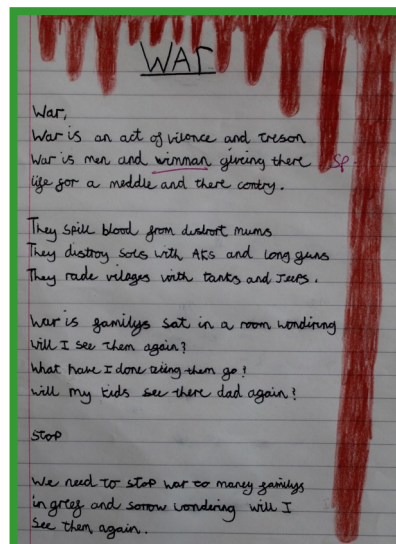 War
War,
War is an act of vilonce and treson
War is men and wimman giveing there Sp.
life for a meddle and there contry.
They spill blood from distrort mums
They distroy sols with AKs and long guns
They rade vilages with tanks and Jeeps.
War is familys sat in a room wondiring
will I see them again?
What have I done leting them go?
will my kids see there dad again?
STOP
We need to stop war to maney familys
in greef and sorrow wondering will I
see them again.